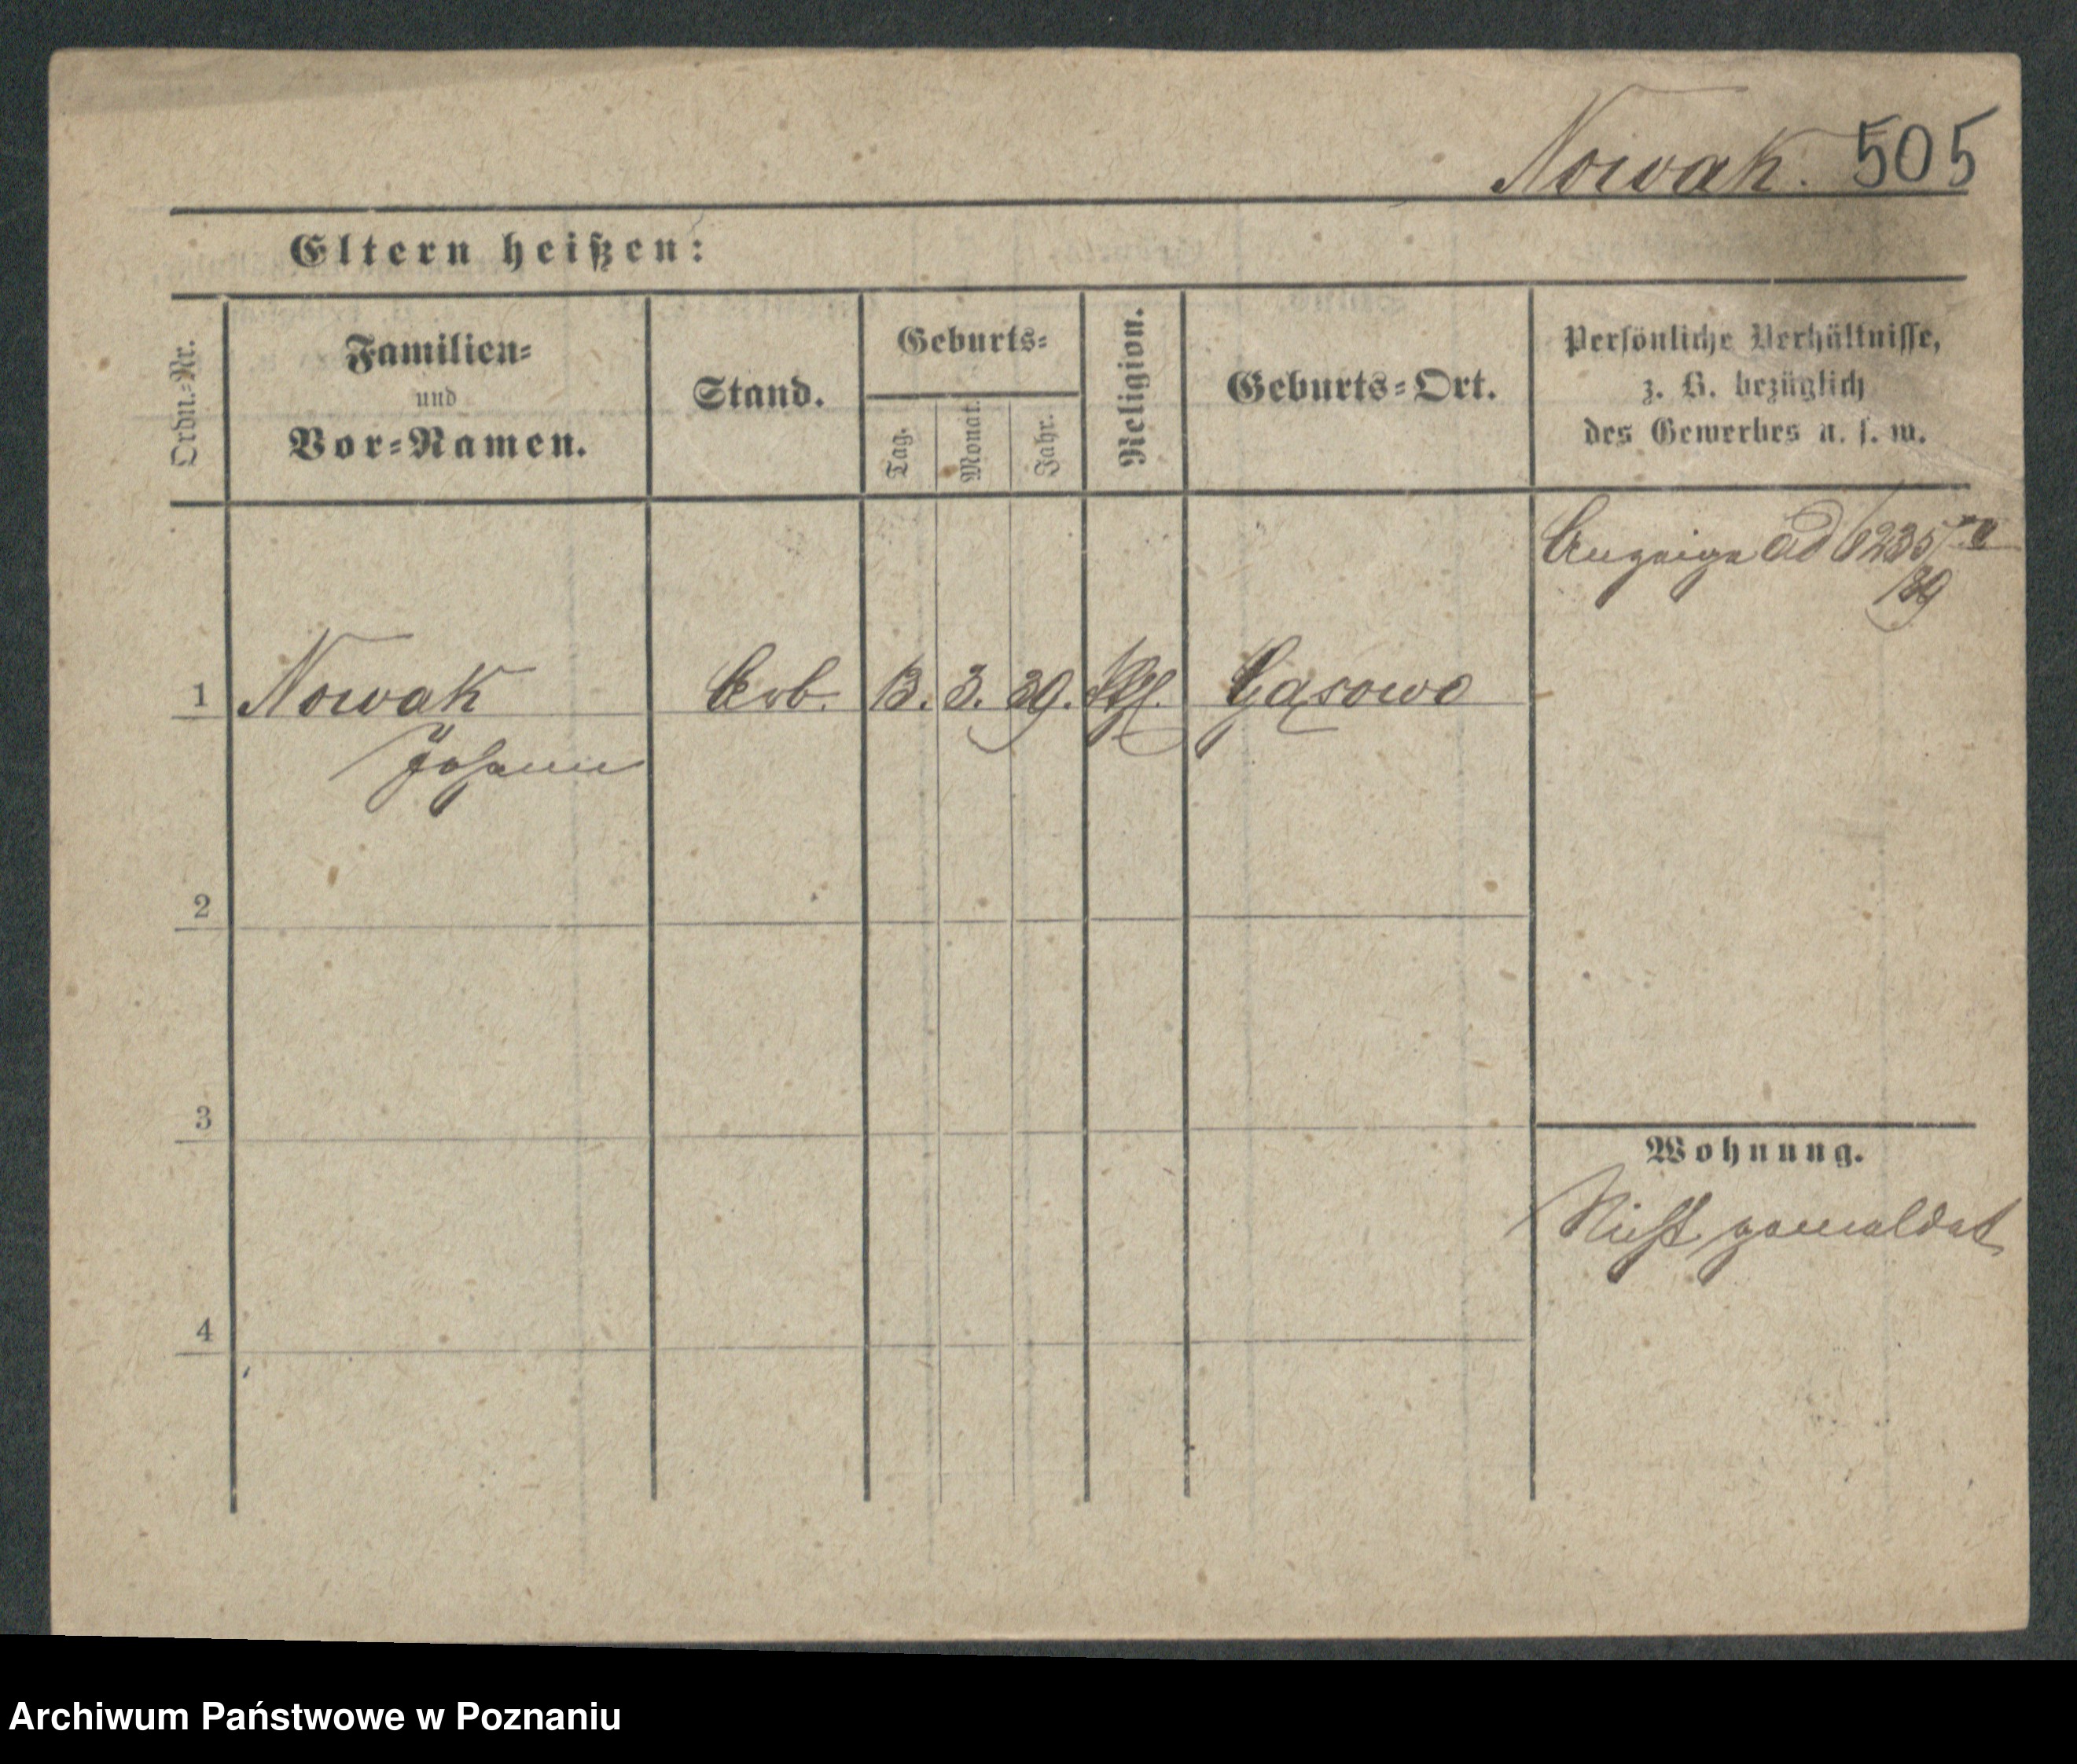 Nowak. 505
Eltern heißen:
Ordn.-Nr.
Familien-
und
Vor-Namen.
Stand.
Geburts-
Tag.
Monat.
Jahr.
Religion.
Geburts-Ort.
Persönliche Verhältnisse,
z. B. bezüglich
des Gewerbes u. s. w.
Anzeige ad
1 Nowak Arb. 13. 3. 39. Gąsowo
Johann
2
3
4
Wohnung.
Nicht gemeldet
Archiwum Państwowe w Poznaniu